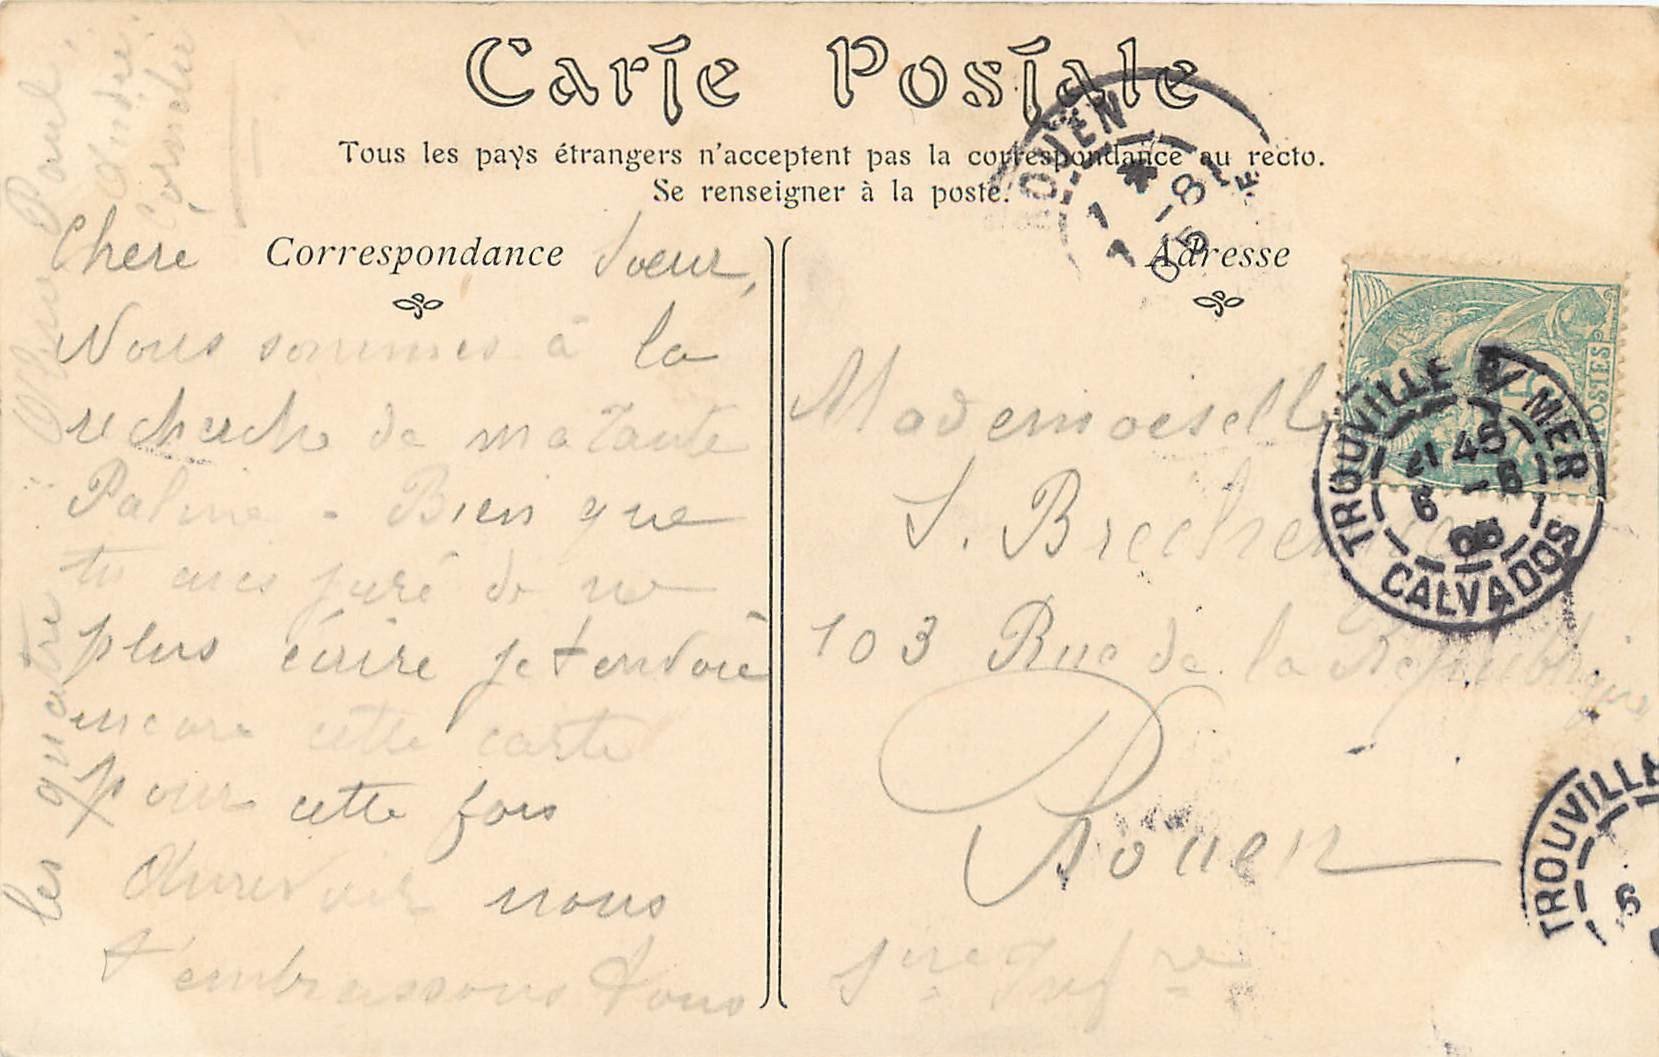 Carte Postale
Tous les pays étrangers n'acceptent pas la correspondance au recto.
Se renseigner à la poste.
Correspondance
Adresse
Chere Soeur,
Nous sommes à la
recherche de ma Tante
Palmire - Bien que
tu aies juré de ne
plus écrire je t'envoie
encore cette carte
pour cette fois
Aurevoir nous
t'embrassons tous
les quatre
Paul,
André
Mademoiselle
S.
103 Rue de la République
Rouen
Sne Infre
ROUEN
1 * 8
05
POSTES
TROUVILLE S/ MER
21 45
6 -8
05
CALVADOS
TROUVILL
6